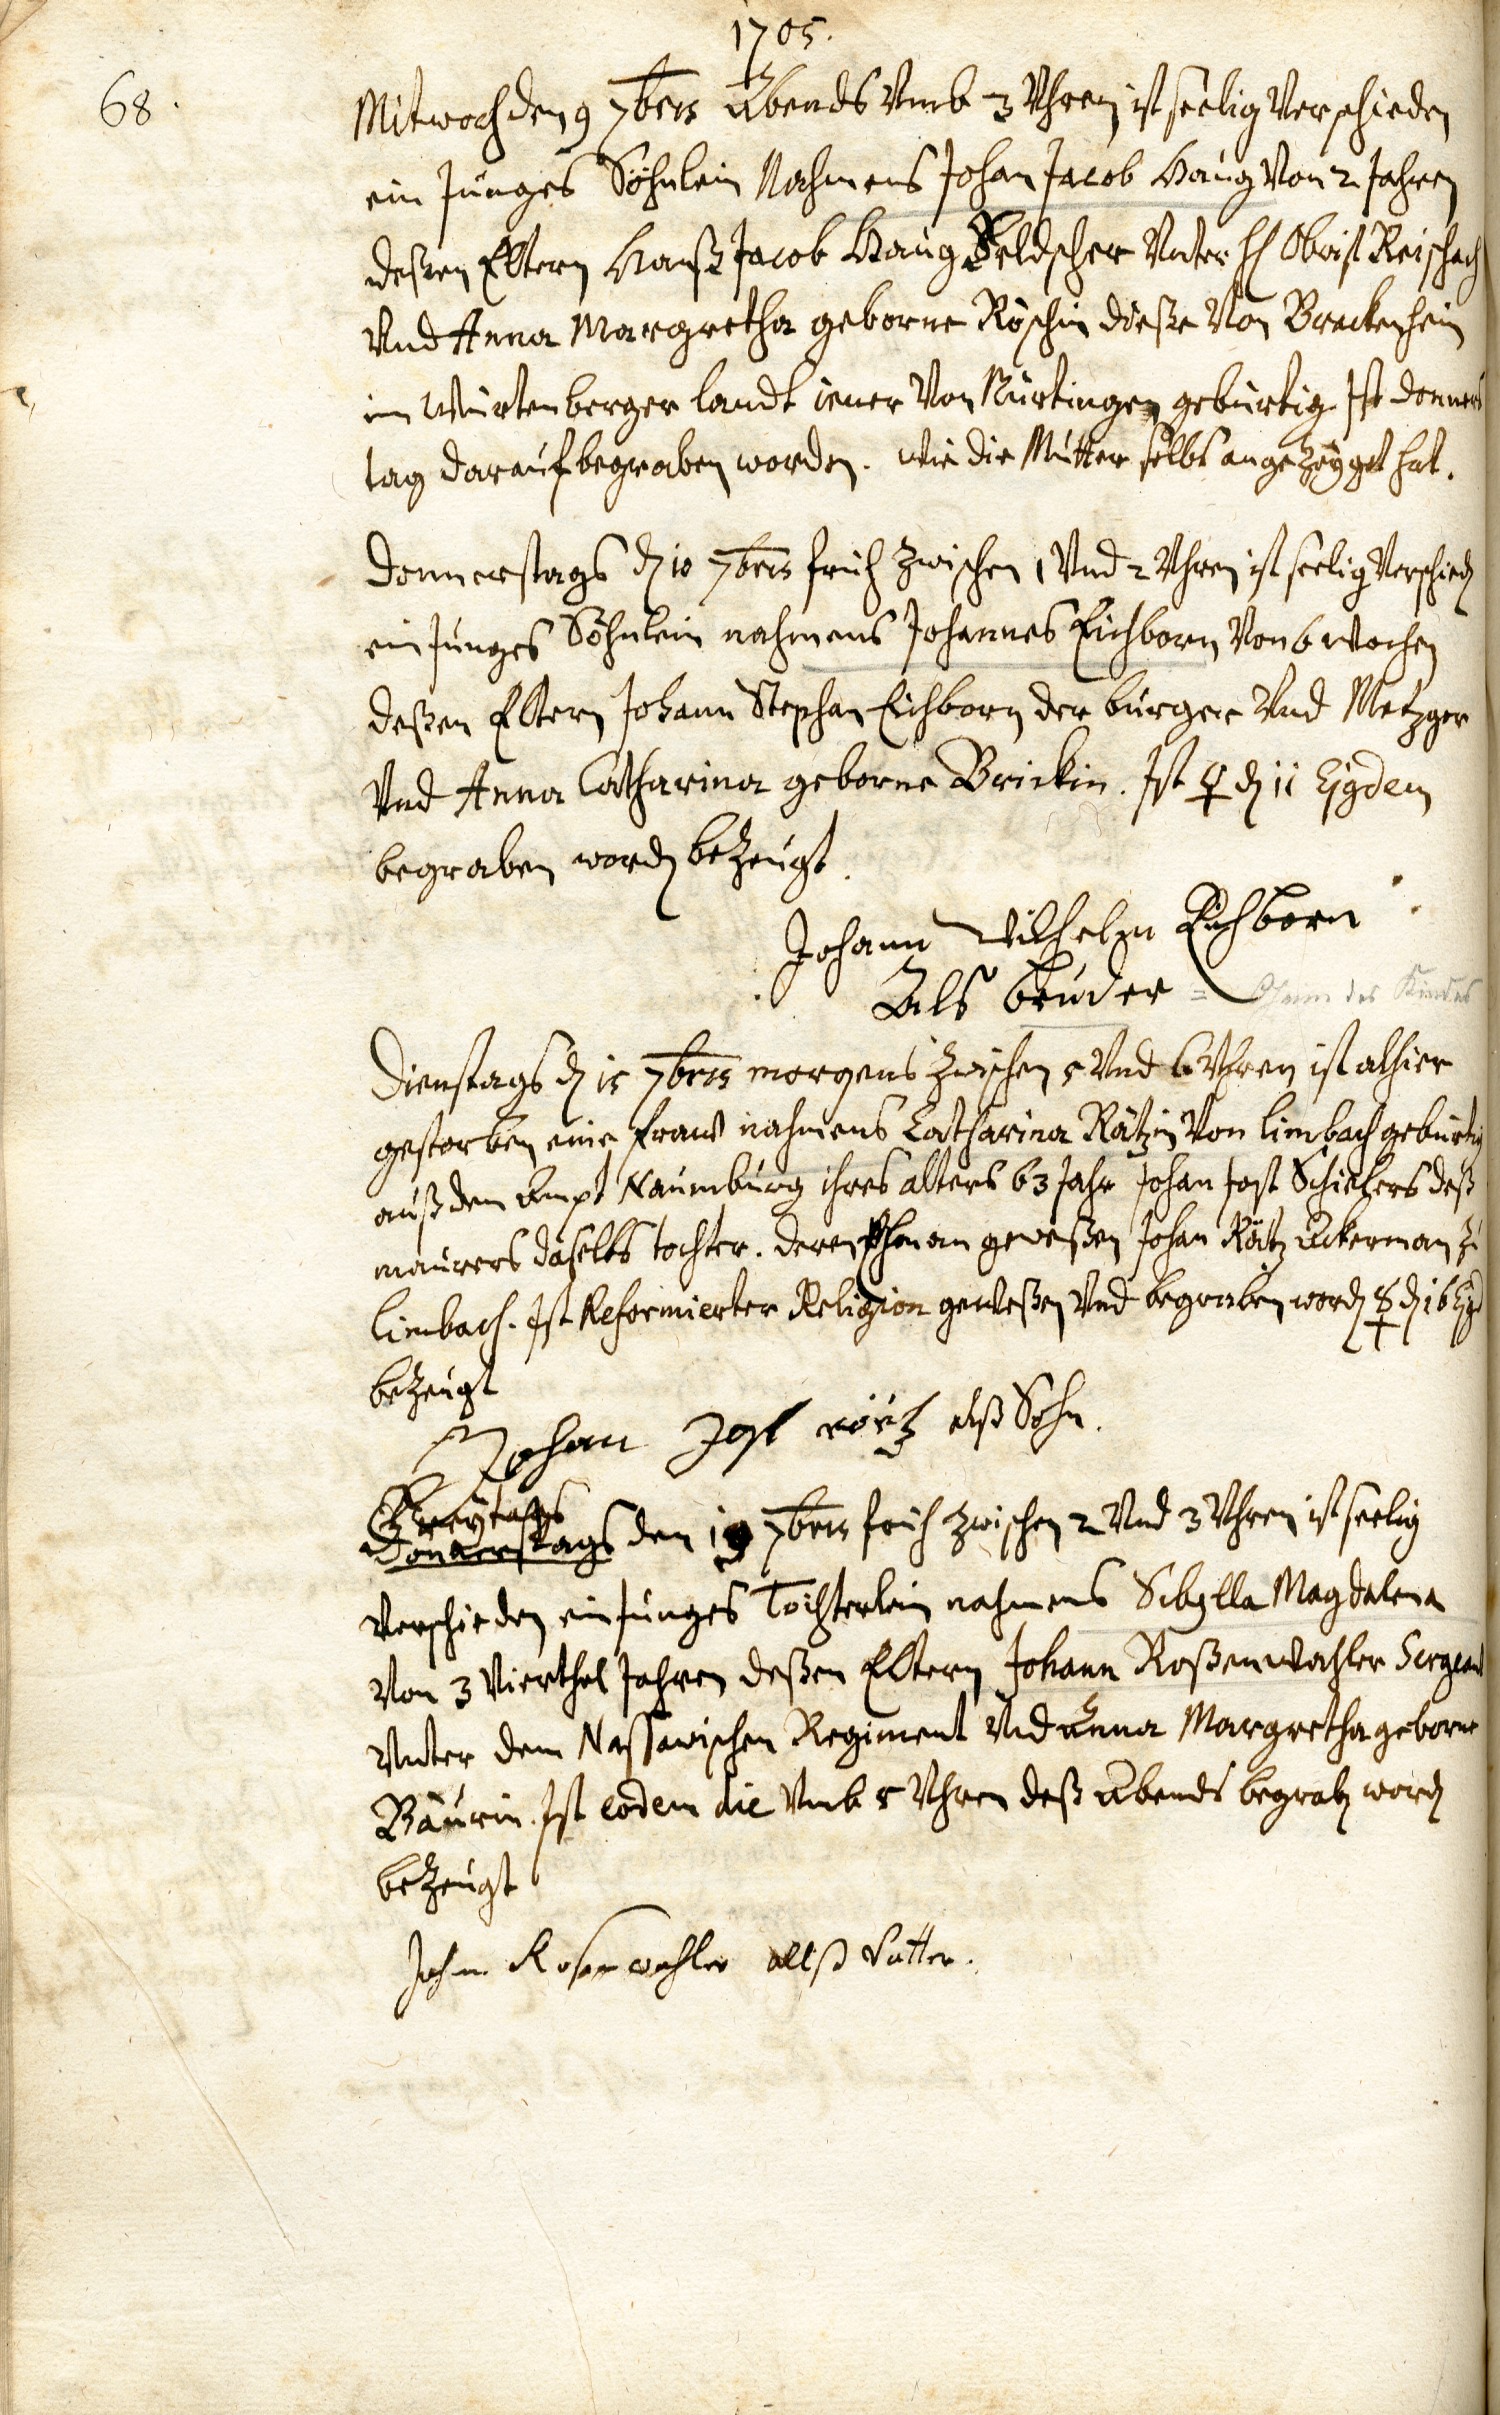 1705.
68.
Mitwoch den 9 7bris Abends Vmb 3 Vhren ist seelig Verschieden
ein Junges Söhnlein Nahmens Johan Jacob Haug Von 2 Jahren
deßen Eltern Hanß Jacob Haug Feldscher Vnter H Obrist Reischach
Vnd Anna Margretha geborne Röschin dieße Von Brackenheim
im Würtenberger landt iener Von Nürtingen gebürtig Ist donners
tag darauf begraben worden. wie die Mutter selbs angezeyget hat.
Donnerstags d 10 7bris früh zwischen 1 Vnd 2 Vhren ist seelig Verschied
ein Junges Söhnlein nahmens Johannes Eichborn Von 6 wochen
deßen Eltern Johann Stephan Eichborn der burger Vnd Metzger
Vnd Anna Catharina geborne Brickin. Ist ♀ d 11 Ejgdem
begraben word bezeugt.
Johann Wilhelm Eichborn
Als bruder = Oheim des Kindes
Dienstags d 15 7bris morgens zwischen 5 Vnd 6 Vhren ist alhier
gestorben eine fraw nahmens Catharina Rätzin Von limbach gebürtig
auß dem Ampt Naumburg ihres alters 63 Jahr Johan Jost Schiekers deß
maurers daselbs tochter. deren Ehman geweßen Johan Rätz Ackerman zu
limbach. Ist Reformierter Religion geweßen Vnd begraben word ☿ d 16 Ejgd
bezeugt
Johan Jost rötz alß Sohn.
Freytags
Donnerstags den 19 7bris früh zwischen 2 Vnd 3 Vhren ist seelig
Verschieden ein Junges Töchterlein nahmens Sibylla Magdalena
Von 3 Vierthel Jahren deßen Eltern Johann Roßenwachler Sergeant
Vnter dem Nassawischen Regiment Vnd Anna Margretha geborne
Bäurin. Ist eodem die Vmb 5 Vhren deß Abends begrab word
bezeugt
Johan Rosenwachler alß Vatter.